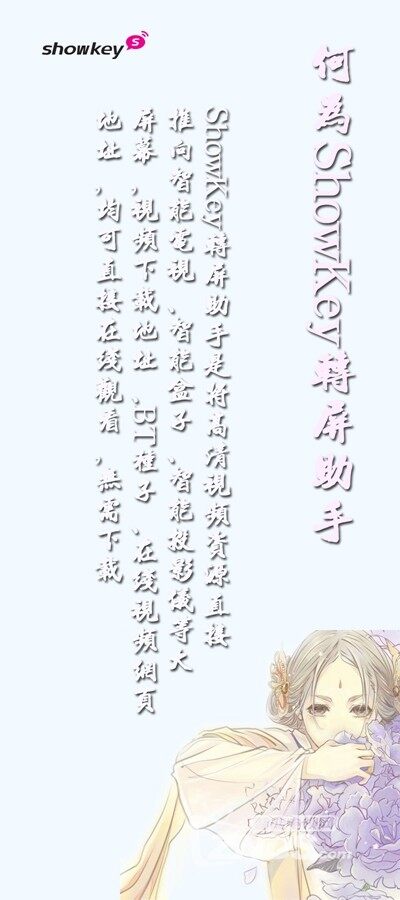 showkey
何為ShowKey轉屏助手
ShowKey轉屏助手是將高清視頻資源直接
推向智能電視、智能盒子、智能投影儀等大
屏幕,視頻下載地址、BT種子、在綫視頻網頁
地址,均可直接在綫觀看,無需下載